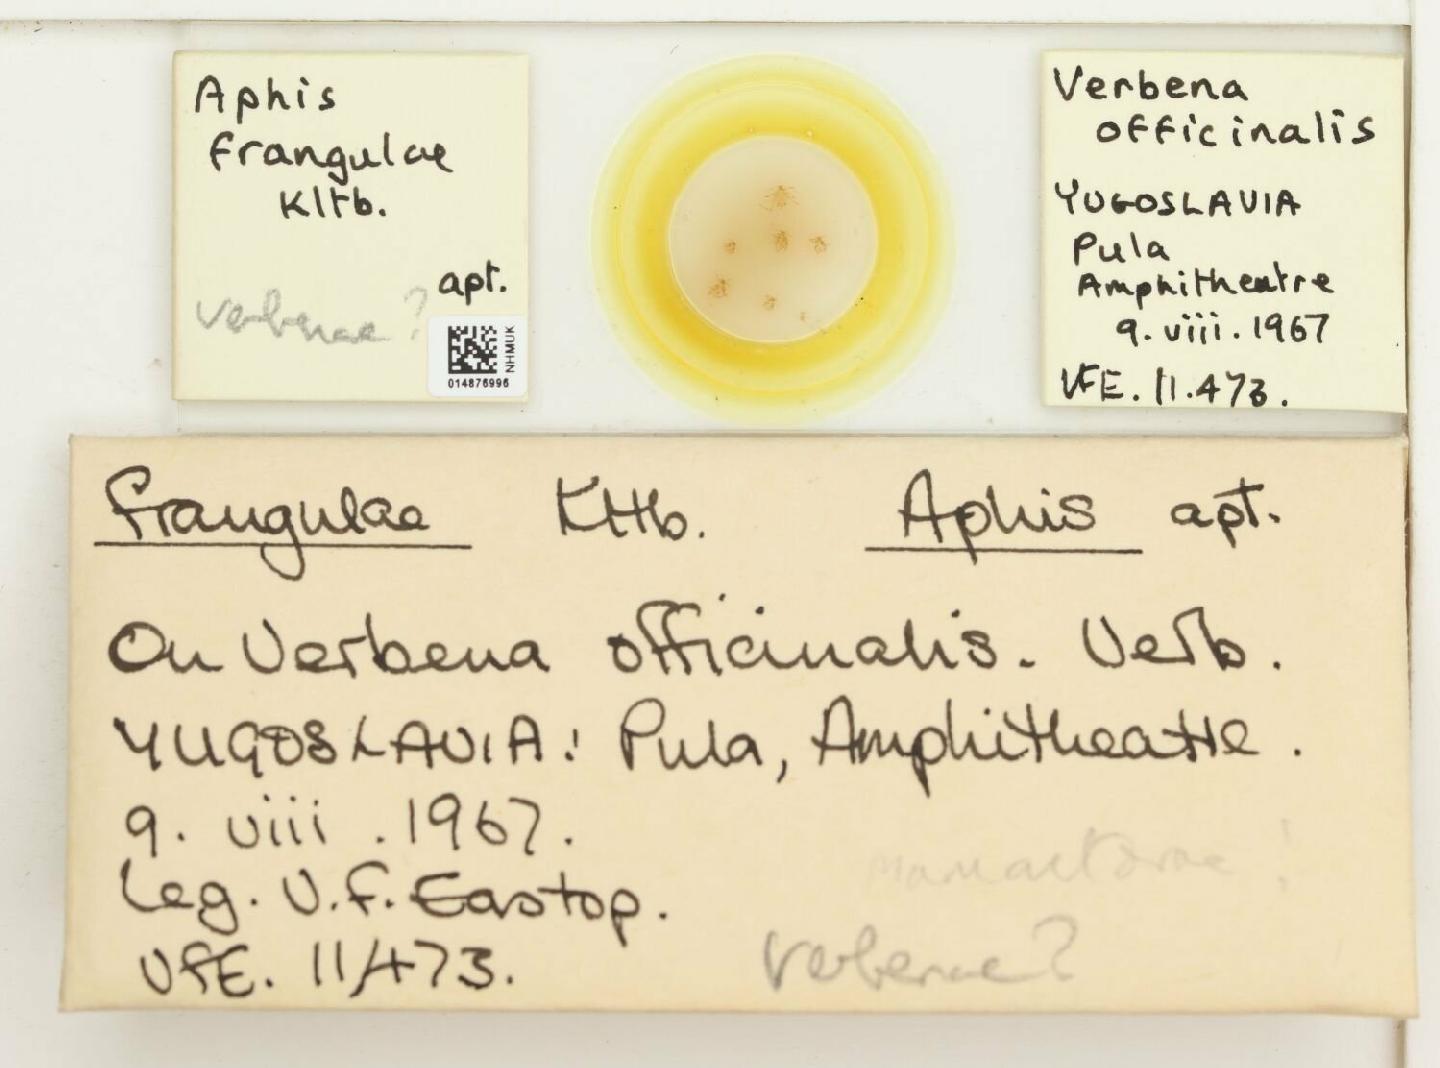 Aphis
frangulae
Kltb.
apt.
verbenae?
NHMUK
014876996
Verbena
officinalis
YUGOSLAVIA
Pula
Amphitheatre
9. viii. 1967
VFE. 11.473.
frangulae Kltb. Aphis apt.
On Verbena officinalis. Verb.
YUGOSLAVIA: Pula, Amphitheatre.
9. viii. 1967.
Leg. V.F. Eastop.
VFE. 11/473.
verbenae?